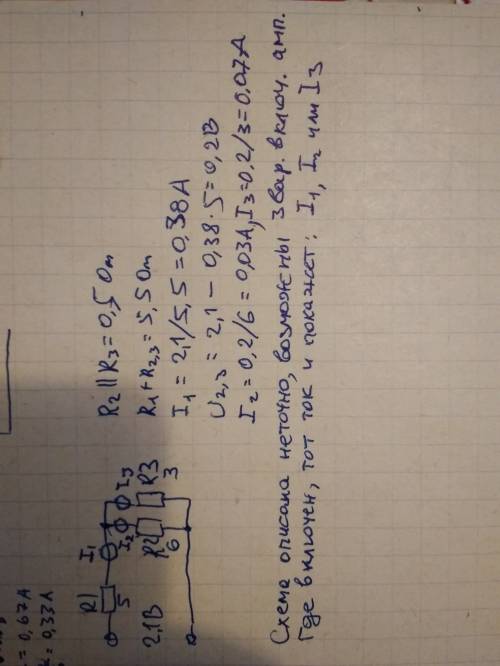 = 0,67А
= 0,33А
R1
5
I₁
I₂
I₃
R2
6
R3
3
2,1В
R₂ || R₃ = 0,5 Ом
R₁ + R₂,₃ = 5,5 Ом
I₁ = 2,1/5,5 = 0,38А
U₂,₃ = 2,1 - 0,38 · 5 = 0,2В
I₂ = 0,2/6 = 0,03А, I₃ = 0,2/3 = 0,07А
Схема описана неточно, возможны 3 вар. включ. амп.
Где включен, тот ток и покажет: I₁, I₂ или I₃